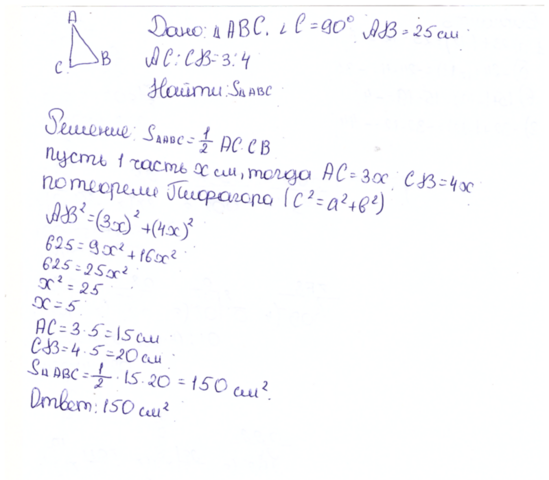 A
C
B
Дано: △ABC. ∠C=90° AB=25см
AC:CB=3:4
Найти: S△ABC
Решение: S△ABC=1/2 AC·CB
пусть 1 часть x см, тогда AC=3x CB=4x
по теореме Пифагора (c²=a²+b²)
AB²=(3x)²+(4x)²
625=9x²+16x²
625=25x²
x²=25
x=5
AC=3·5=15см
CB=4·5=20см
S△ABC=1/2·15·20=150 см².
Ответ: 150 см²